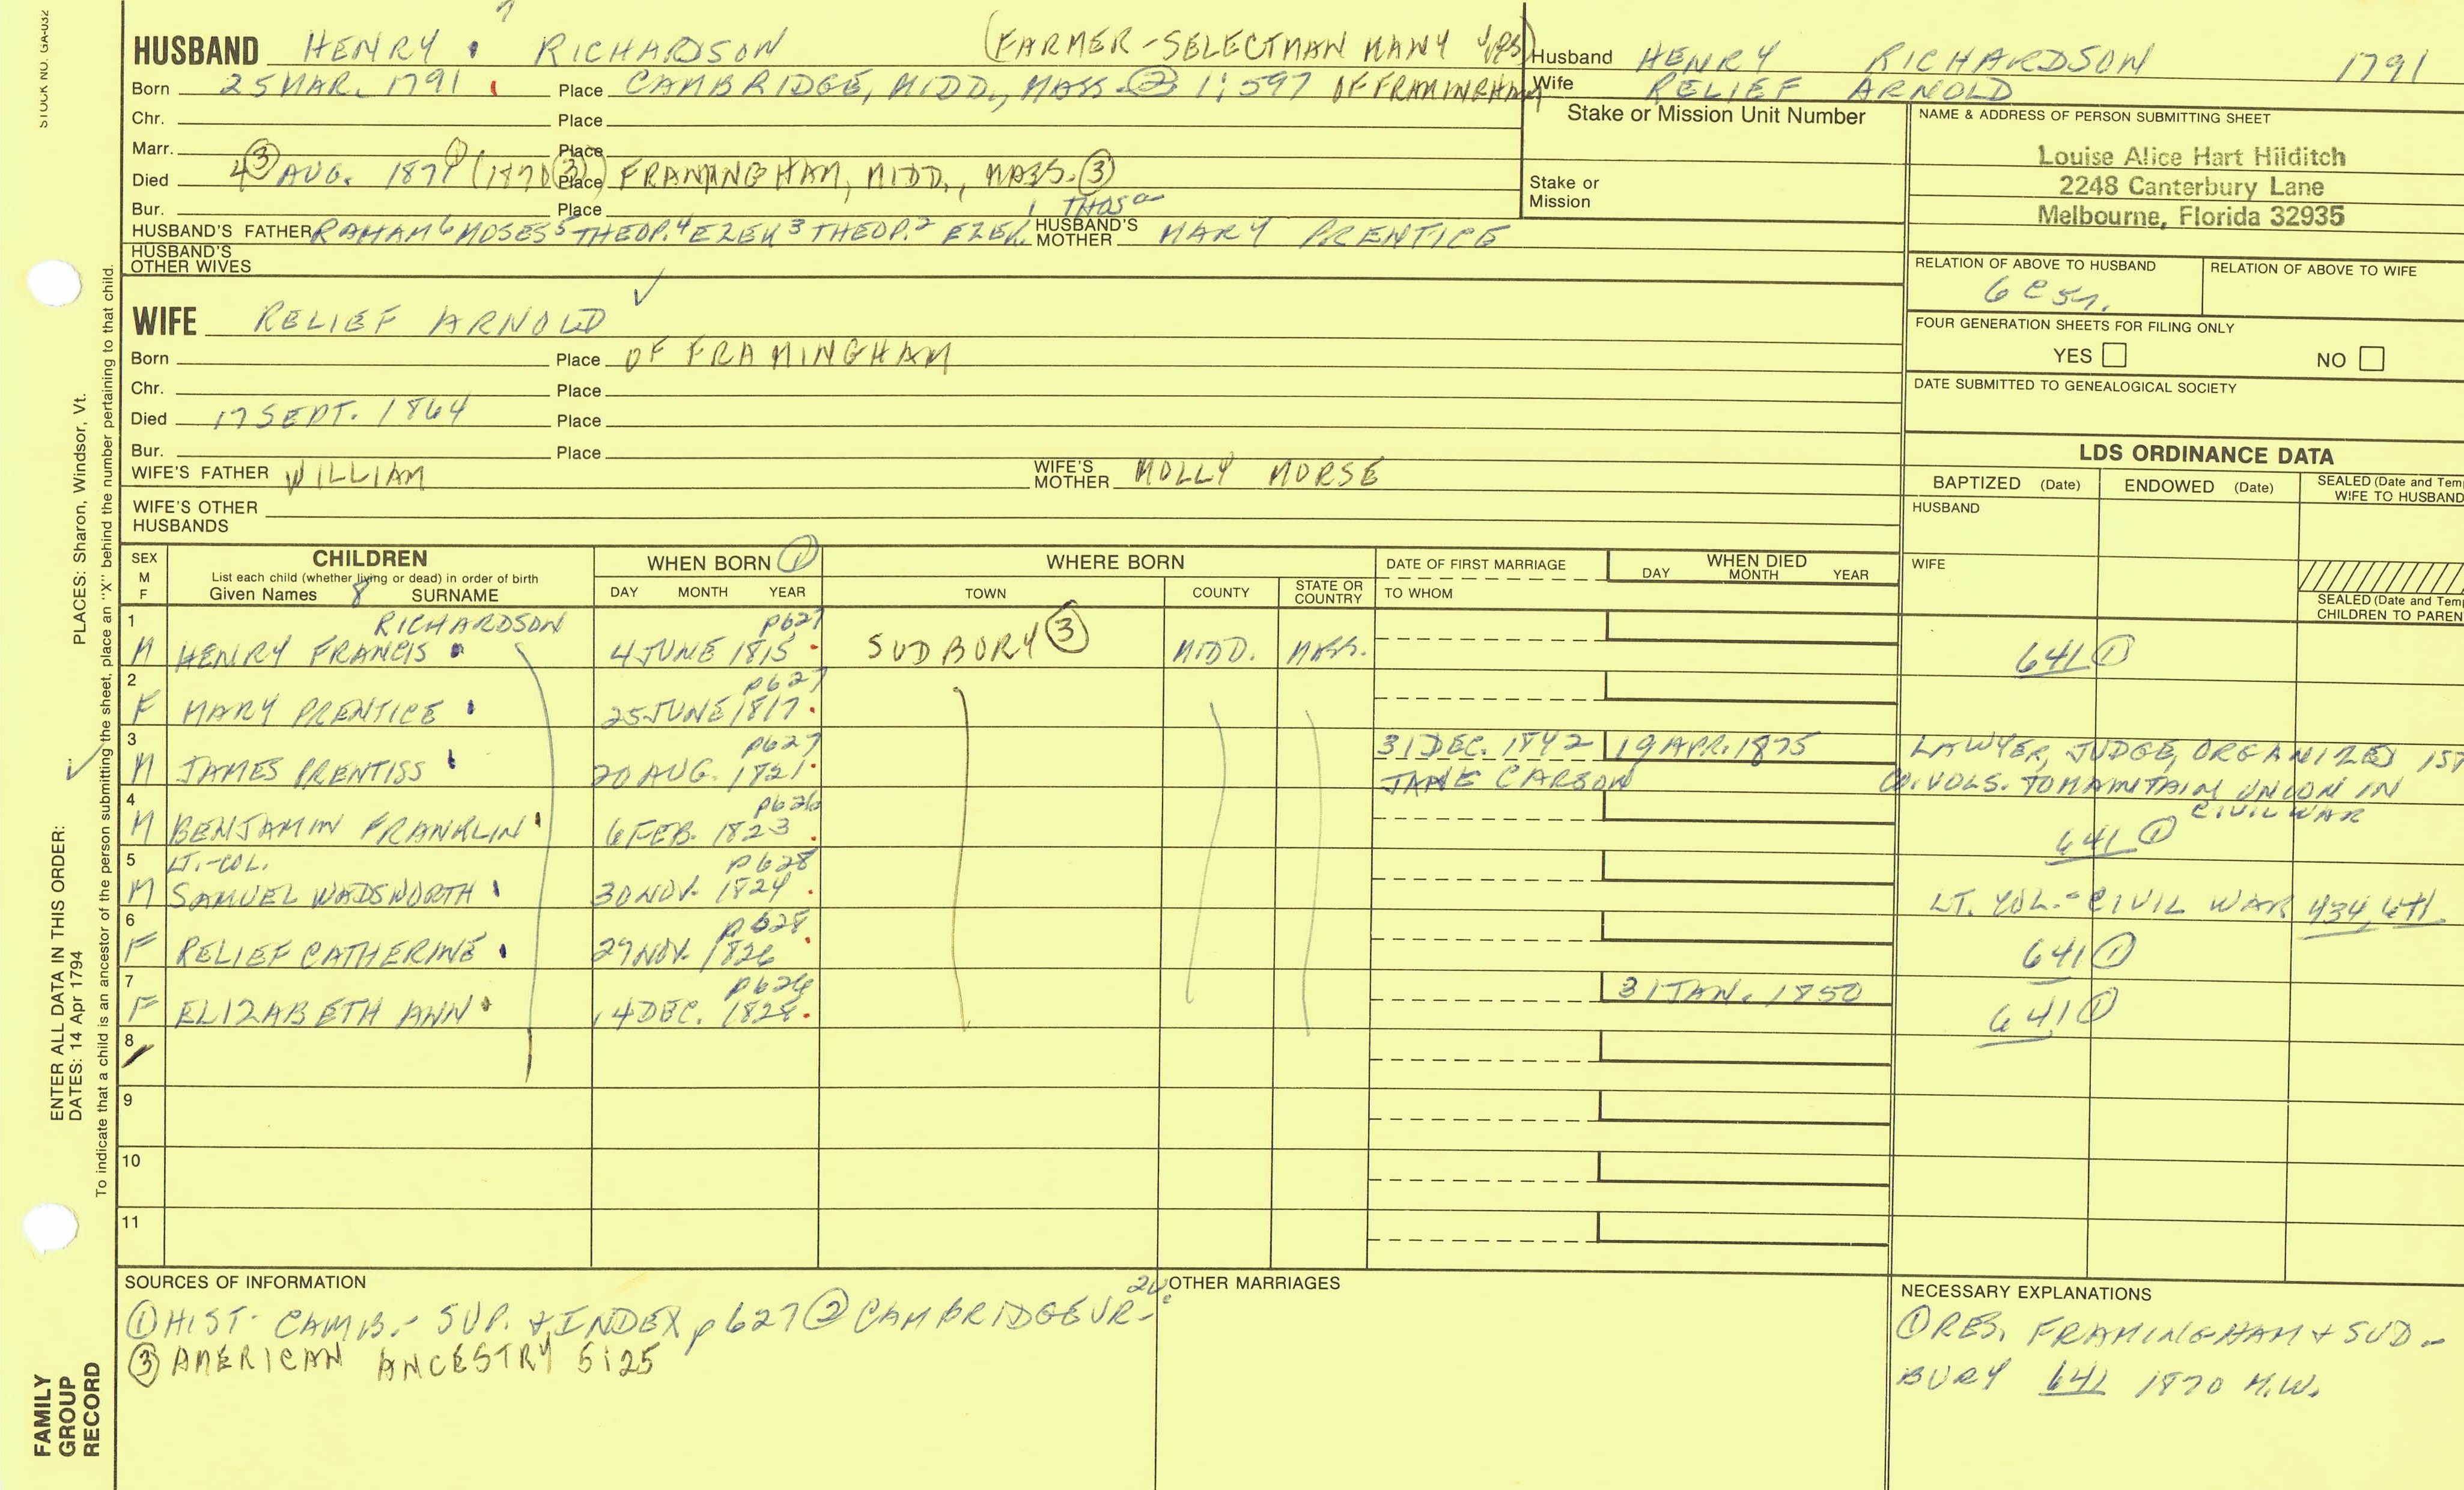 STOCK NO. GA-032
HUSBAND HENRY RICHARDSON (FARMER - SELECTMAN MANY YRS)
Born 25 MAR. 1791 Place CAMBRIDGE, MIDD., MASS. ② 1:597 OF FRAMINGHAM
Chr. Place
Marr. Place
Died 4③ AUG. 1871① (1870③) Place FRAMINGHAM, MIDD., MASS. ③
Bur. Place
HUSBAND'S FATHER RAHAM6 MOSES5 THEOP.4 EZEK3 THEOP.2 EZEK1 THOS HUSBAND'S MOTHER MARY PRENTICE
HUSBAND'S OTHER WIVES
WIFE RELIEF ARNOLD ✓
Born Place OF FRAMINGHAM
Chr. Place
Died 17 SEPT. 1864 Place
Bur. Place
WIFE'S FATHER WILLIAM WIFE'S MOTHER MOLLY MORSE
WIFE'S OTHER HUSBANDS
Husband HENRY RICHARDSON 1791
Wife RELIEF ARNOLD
Stake or Mission Unit Number
Stake or Mission
NAME & ADDRESS OF PERSON SUBMITTING SHEET
Louise Alice Hart Hilditch
2248 Canterbury Lane
Melbourne, Florida 32935
RELATION OF ABOVE TO HUSBAND RELATION OF ABOVE TO WIFE
FOUR GENERATION SHEETS FOR FILING ONLY
YES NO
DATE SUBMITTED TO GENEALOGICAL SOCIETY
LDS ORDINANCE DATA
BAPTIZED (Date) ENDOWED (Date) SEALED (Date and Temp
WIFE TO HUSBAND
HUSBAND
WIFE
SEALED (Date and Temp
CHILDREN TO PAREN
SEX M F CHILDREN WHEN BORN ① WHERE BORN DATE OF FIRST MARRIAGE WHEN DIED
List each child (whether living or dead) in order of birth
Given Names 8 SURNAME DAY MONTH YEAR TOWN COUNTY STATE OR COUNTRY TO WHOM DAY MONTH YEAR
1 RICHARDSON p627
M HENRY FRANCIS 4 JUNE 1815 SUDBURY ③ MIDD. MASS. 641 ①
2 p627
F MARY PRENTICE 25 JUNE 1817
3 p627 31 DEC. 1842 19 APR. 1875 LAWYER, JUDGE, ORGANIZED 1ST
M JAMES PRENTISS 20 AUG. 1821 JANE CARSON CO. VOLS. TO MAINTAIN UNION IN
CIVIL WAR
4 p626
M BENJAMIN FRANKLIN 6 FEB. 1823 641 ①
5 LT.-COL. p628
M SAMUEL WADSWORTH 30 NOV. 1824 LT. COL. - CIVIL WAR 434, 641
6 p628
F RELIEF CATHERINE 29 NOV. 1826 641 ①
7 p626 31 JAN. 1850
F ELIZABETH ANN 14 DEC. 1828 641 ①
8
9
10
11
SOURCES OF INFORMATION
① HIST. CAMB. - SUP. & INDEX p627 ② CAMBRIDGE VR-
③ AMERICAN ANCESTRY 5:25
OTHER MARRIAGES
NECESSARY EXPLANATIONS
① RES. FRAMINGHAM & SUD-
BURY 641 1870 M.W.
ENTER ALL DATA IN THIS ORDER:
DATES: 14 Apr 1794 PLACES: Sharon, Windsor, Vt.
To indicate that a child is an ancestor of the person submitting the sheet, place an "X" behind the number pertaining to that child.
FAMILY
GROUP
RECORD